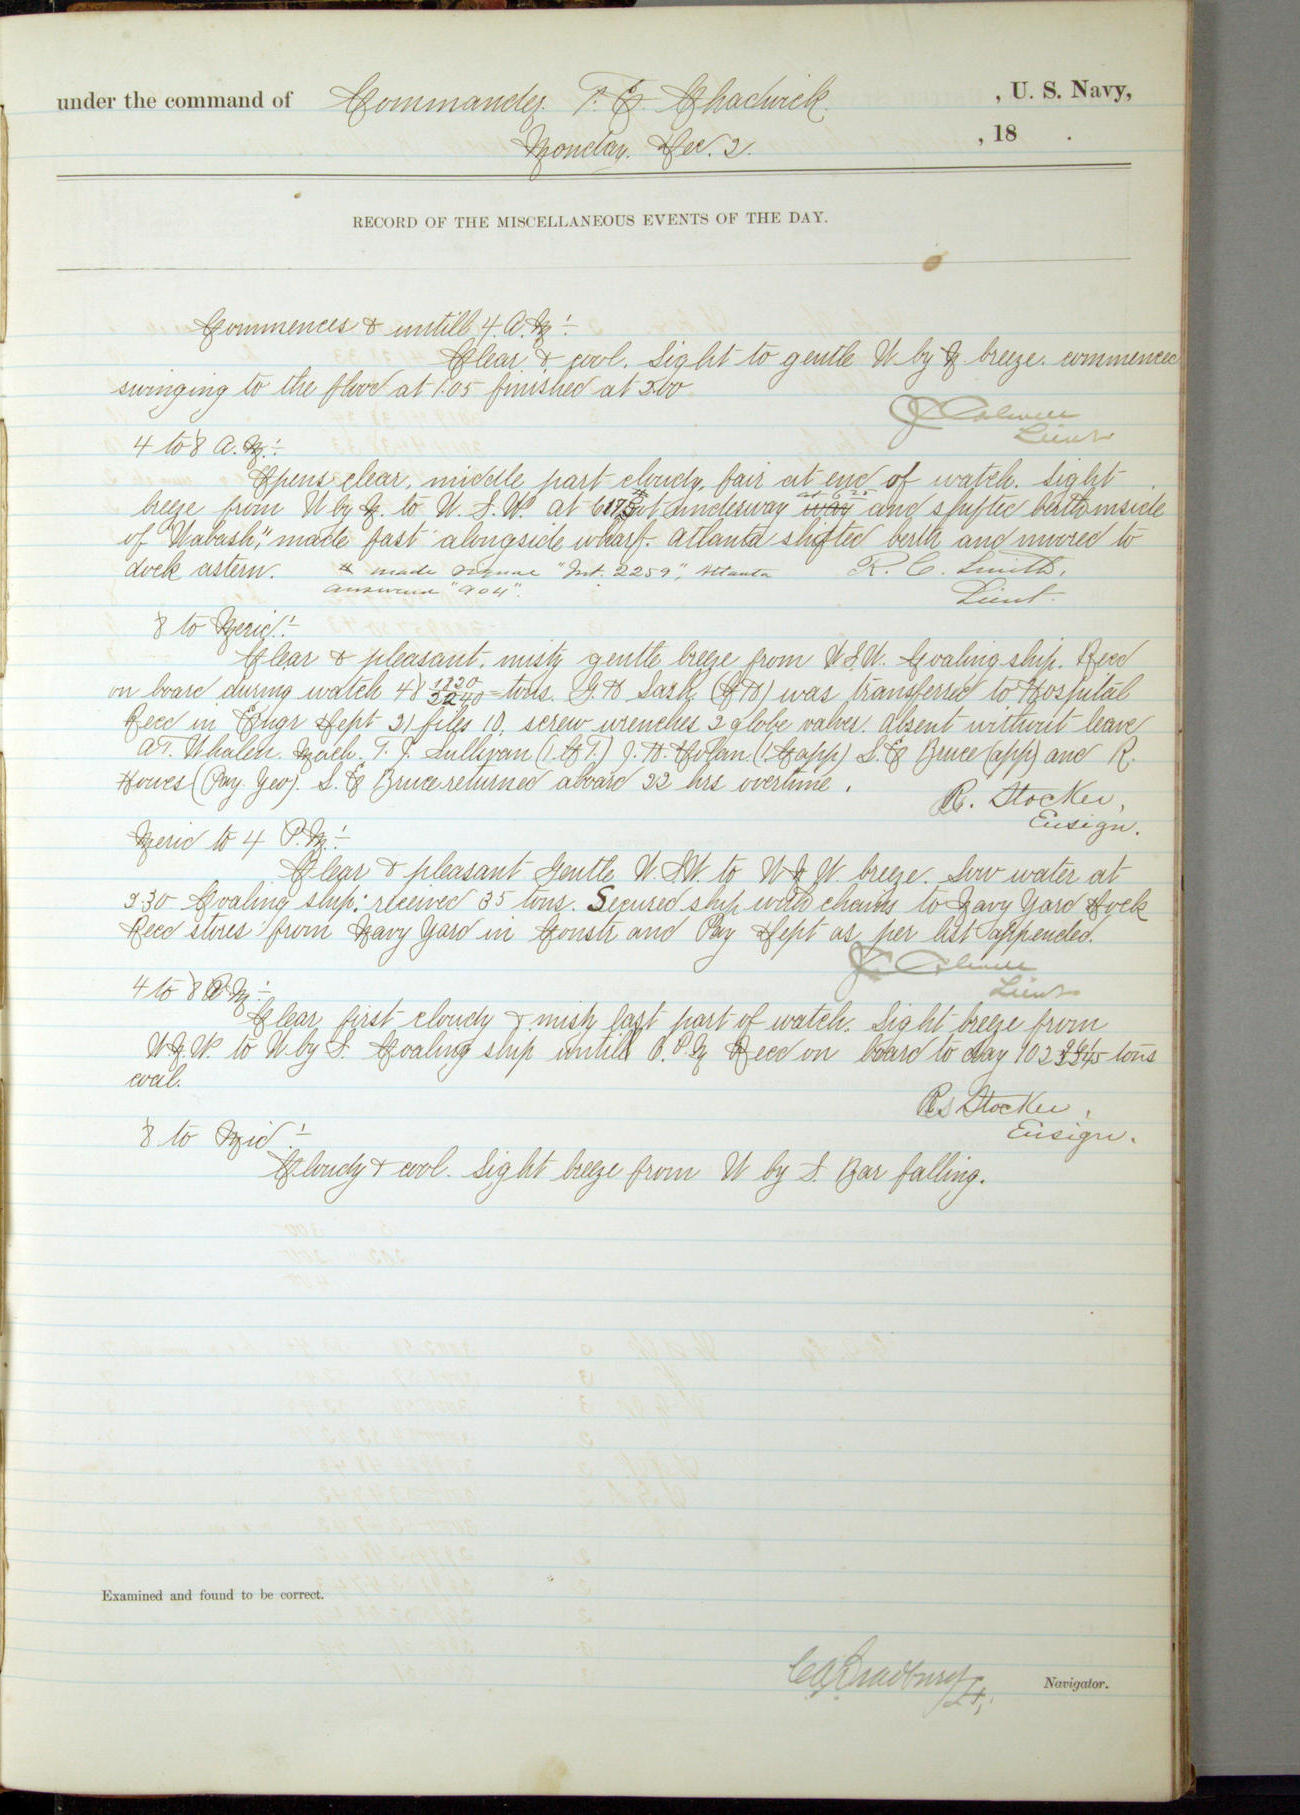 under the command of Commander F. E. Chadwick , U. S. Navy,
Monday. Dec. 2. , 18 .
RECORD OF THE MISCELLANEOUS EVENTS OF THE DAY.
Commences & untill 4. A. M:-
Clear & cool. Light to gentle W by N breeze. commenced
swinging to the flood at 1.05 finished at 2.00
J C Colwell
Lieut
4 to 8 A. M:-
Opens clear, middle part cloudy, fair at end of watch. Light
breeze from W by N. to W. S. W. at got underway at 6 25 and shifted berth inside
of "Wabash," made fast alongside wharf. Atlanta shifted berth and moored to
dock astern. # made signal "Int. 2259", Atlanta R. C. Smith,
answered "904". Lieut.
8 to Merid:-
Clear & pleasant. misty gentle breeze from W.S.W. Coaling ship. Recd
on board during watch 48 1120/2240 tons. was transferred to Hospital
Recd in Engr Dept 21 files 10, screw wrenches 2 globe valves. Absent without leave
A. T. Whalen. Mach. T. J. Sullivan J. H. Nolan (app) L. E Bruce (app) and R.
Howes (Pay. Yeo). L. E Bruce returned aboard 22 hrs overtime.
R. Stocker,
Ensign.
Merid to 4 P. M:-
Clear & pleasant Gentle W.S.W. to W.N.W. breeze. Low water at
2 30 Coaling ship: received 35 tons. Secured ship with chains to Navy Yard Dock
Recd stores from Navy Yard in Constr and Pay Dept as per list appended.
J C Colwell
Lieut
4 to 8 P M:-
Clear first cloudy & misty last part of watch. Light breeze from
W.N.W. to W by S. Coaling ship untill P M Recd on board to day 102 tons
coal.
R. Stocker,
Ensign.
8 to Mid:-
Cloudy & cool. Light breeze from W by S. Bar falling.
Examined and found to be correct.
C A Bradbury Lt, Navigator.